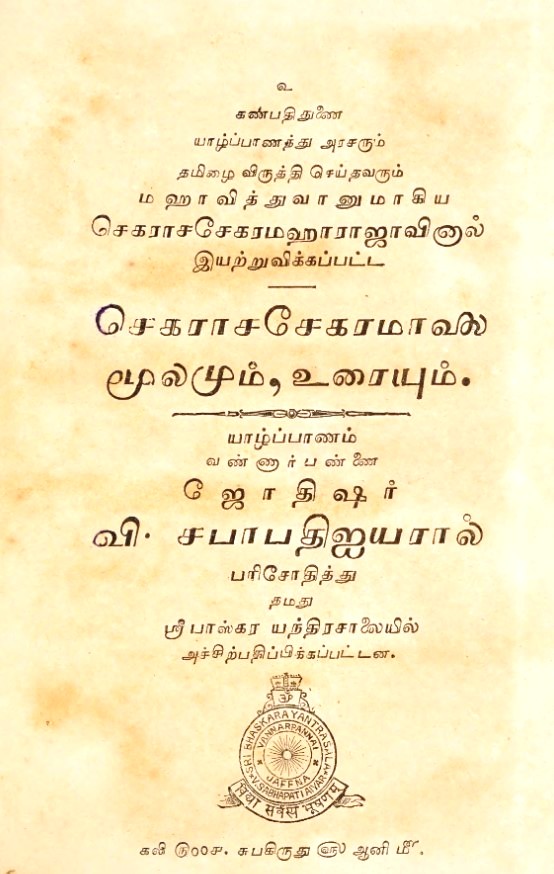 உ
கணபதிதுணை
யாழ்ப்பாணத்து அரசரும்
தமிழை விருத்தி செய்தவரும்
மஹாவித்துவானுமாகிய
செகராசசேகரமஹாராஜாவினால்
இயற்றுவிக்கப்பட்ட
செகராசசேகரமாலை
மூலமும், உரையும்.
யாழ்ப்பாணம்
வண்ணார்பண்ணை
ஜோதிஷர்
வி. சபாபதிஐயரால்
பரிசோதித்து
தமது
ஸ்ரீ பாஸ்கர யந்திரசாலையில்
அச்சிற்பதிப்பிக்கப்பட்டன.
SRI BHASKARA YANTRASALA
VANNARPANNAI
JAFFNA
V. SABHAPATI AIYAR
विद्या सर्वस्य भूषणम्
கலி ௫௦௦௪. சுபகிருது ௵ ஆனி ௴.